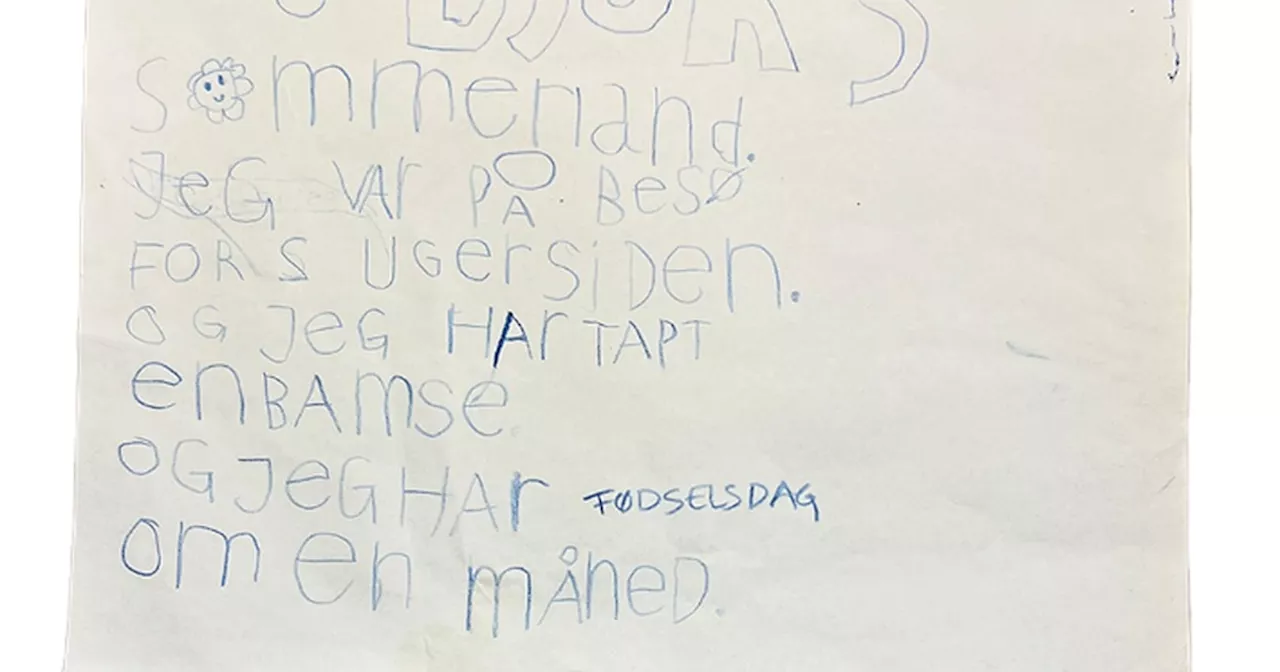 DJURS
Sommerland.
JeG VAr PÅ BesØ
FOR 5 UGer SiDen.
OG JeG HAr TAPT
en BAmse
OG JeG HAr FØDSELSDAG
om en mÅneD.